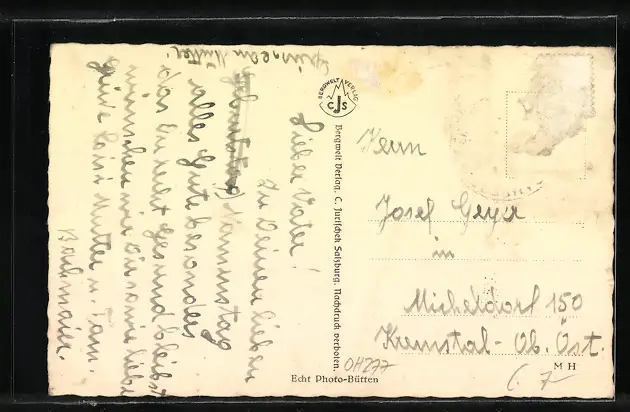 Lieber Vater!
Zu Deinem lieben
Geburtstag Namenstag
alles Gute besonders
das Du recht gesund bleibst
wünschen wir Dir sowie liebe
Mutter u. Fam.
Bachmaier.
BERGWELT VERLAG
C J S
Bergwelt Verlag, C. Jurischek Salzburg. Nachdruck verboten.
Herrn
Josef Geyer
in
Micheldorf 150
Kremstal - Ob. Öst.
OH277
M H
Echt Photo-Bütten